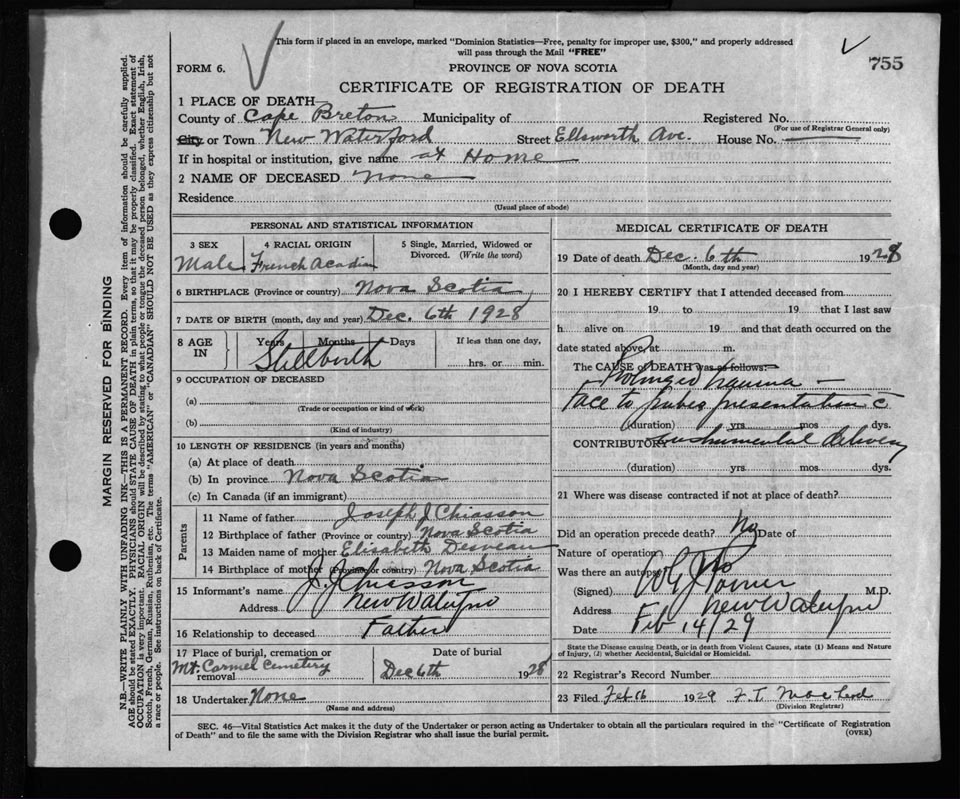 This form if placed in an envelope, marked "Dominion Statistics—Free, penalty for improper use, $300," and properly addressed
will pass through the Mail "FREE"
FORM 6.
PROVINCE OF NOVA SCOTIA
755
CERTIFICATE OF REGISTRATION OF DEATH
1 PLACE OF DEATH
County of Cape Breton Municipality of Registered No.
(For use of Registrar General only)
City or Town New Waterford Street Ellsworth Ave. House No.
If in hospital or institution, give name at Home
2 NAME OF DECEASED None
Residence
(Usual place of abode)
PERSONAL AND STATISTICAL INFORMATION
3 SEX 4 RACIAL ORIGIN 5 Single, Married, Widowed or
Divorced. (Write the word)
Male French Acadian
6 BIRTHPLACE (Province or country) Nova Scotia
7 DATE OF BIRTH (month, day and year) Dec. 6th 1928
8 AGE IN Years Months Days If less than one day,
Stillbirth hrs. or min.
9 OCCUPATION OF DECEASED
(a)
(Trade or occupation or kind of work)
(b)
(Kind of industry)
10 LENGTH OF RESIDENCE (in years and months)
(a) At place of death
(b) In province Nova Scotia
(c) In Canada (if an immigrant)
Parents
11 Name of father Joseph J Chiasson
12 Birthplace of father (Province or country) Nova Scotia
13 Maiden name of mother Elisabeth Desveau
14 Birthplace of mother (Province or country) Nova Scotia
15 Informant's name J. J. Chiasson
Address
16 Relationship to deceased Father
17 Place of burial, cremation or
removal Mt. Carmel Cemetery
Date of burial
Dec 6th 1928
18 Undertaker None
(Name and address)
MEDICAL CERTIFICATE OF DEATH
19 Date of death Dec. 6th 1928
(Month, day and year)
20 I HEREBY CERTIFY that I attended deceased from
19 to 19 that I last saw
h alive on 19 and that death occurred on the
date stated above, at m.
The CAUSE of DEATH was as follows:
Prolonged trauma –
Face to pubes presentation c̄
(duration) yrs mos dys.
CONTRIBUTORY instrumental delivery
(duration) yrs mos dys.
21 Where was disease contracted if not at place of death?
Did an operation precede death? No Date of
Nature of operation
Was there an autopsy No
(Signed) M.D.
Address
Date Feb 14/29
State the Disease causing Death, or in death from Violent Causes, state (1) Means and Nature
of Injury, (2) whether Accidental, Suicidal or Homicidal.
22 Registrar's Record Number
23 Filed Feb 16 1929 F. T. MacLeod
(Division Registrar)
SEC. 46—Vital Statistics Act makes it the duty of the Undertaker or person acting as Undertaker to obtain all the particulars required in the "Certificate of Registration
of Death" and to file the same with the Division Registrar who shall issue the burial permit.
(OVER)
MARGIN RESERVED FOR BINDING
N.B.—WRITE PLAINLY WITH UNFADING INK—THIS IS A PERMANENT RECORD. Every item of information should be carefully supplied.
AGE should be stated EXACTLY. PHYSICIANS should STATE CAUSE OF DEATH in plain terms, so that it may be properly classified. Exact statement of
OCCUPATION is very important. RACIAL ORIGIN will be described by stating to what people or tongue the deceased person belonged, whether English, Irish,
Scotch, French, German, Russian, Ruthenian, etc. The terms "AMERICAN" or "CANADIAN" SHOULD NOT BE USED as they express citizenship but not
a race or people. See instructions on back of Certificate.